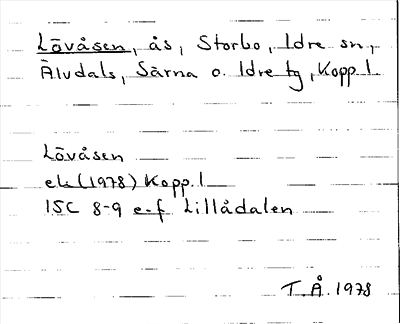 Lövåsen, ås, Storbo, Idre sn,
Älvdals, Särna o. Idre tg, Kopp. l.
Lövåsen
ek (1978) Kopp. l
15C 8-9 e-f Lillådalen
T.Å. 1978